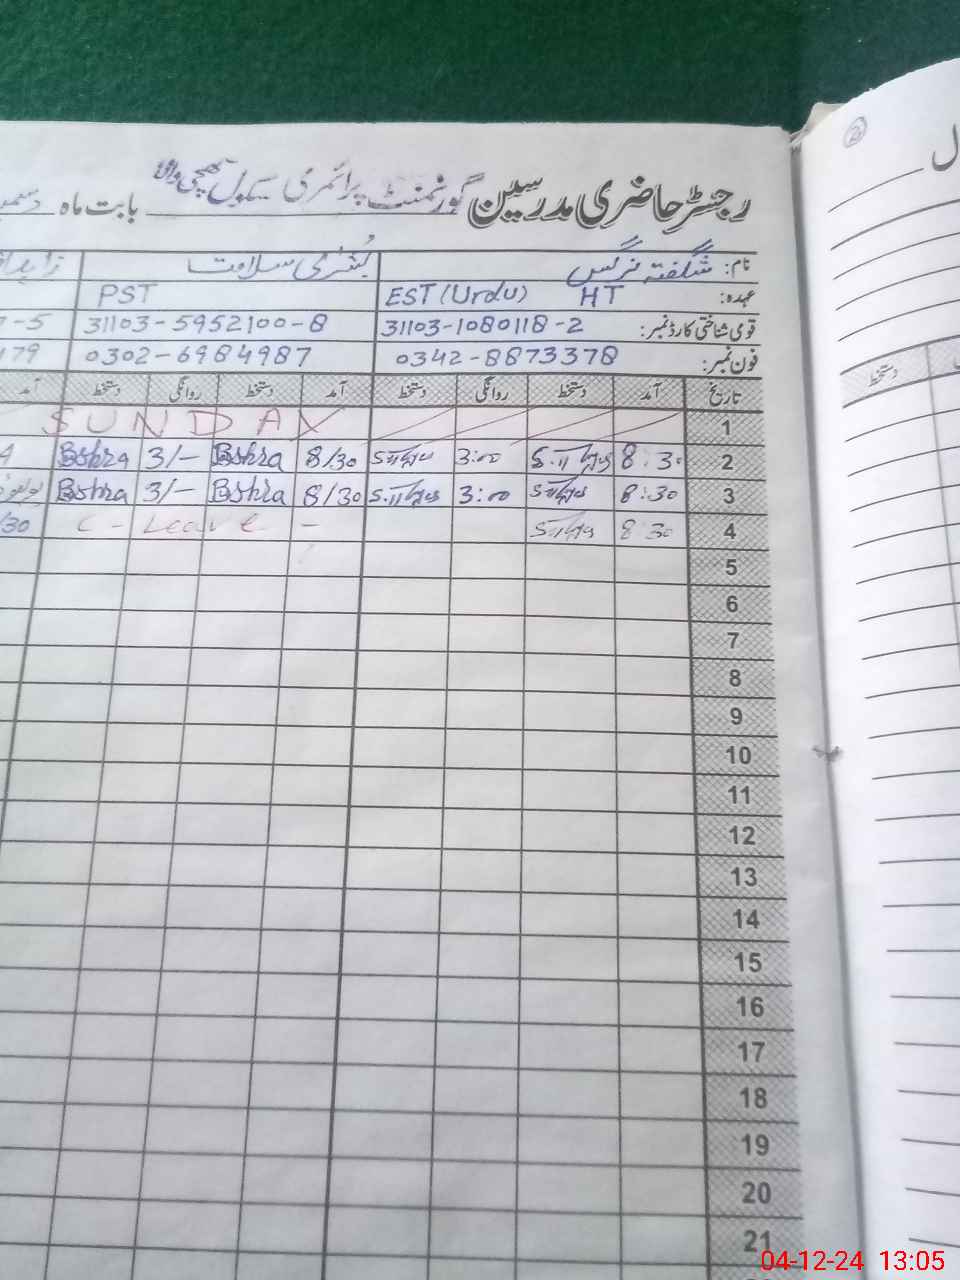 رجسٹر حاضری مدرسین گورنمنٹ پرائمری سکول بابت ماہ دسمبر
نام: شگفتہ نرگس بشریٰ سلامت
عہدہ: EST (Urdu) HT PST
قومی شناختی کارڈ نمبر: 31103-1080118-2 31103-5952100-8 -5
فون نمبر: 0342-8873378 0302-6984987 179
تاریخ آمد دستخط روانگی دستخط آمد دستخط روانگی دستخط آمد
1 SUNDAY
2 8:30 3:00 8/30 Bshra 3/- Bshra
3 8:30 3:00 8/30 Bshra 3/- Bshra
4 8:30 C-Leave - /30
5
6
7
8
9
10
11
12
13
14
15
16
17
18
19
20
21
2
ل
دستخط
04-12-24 13:05